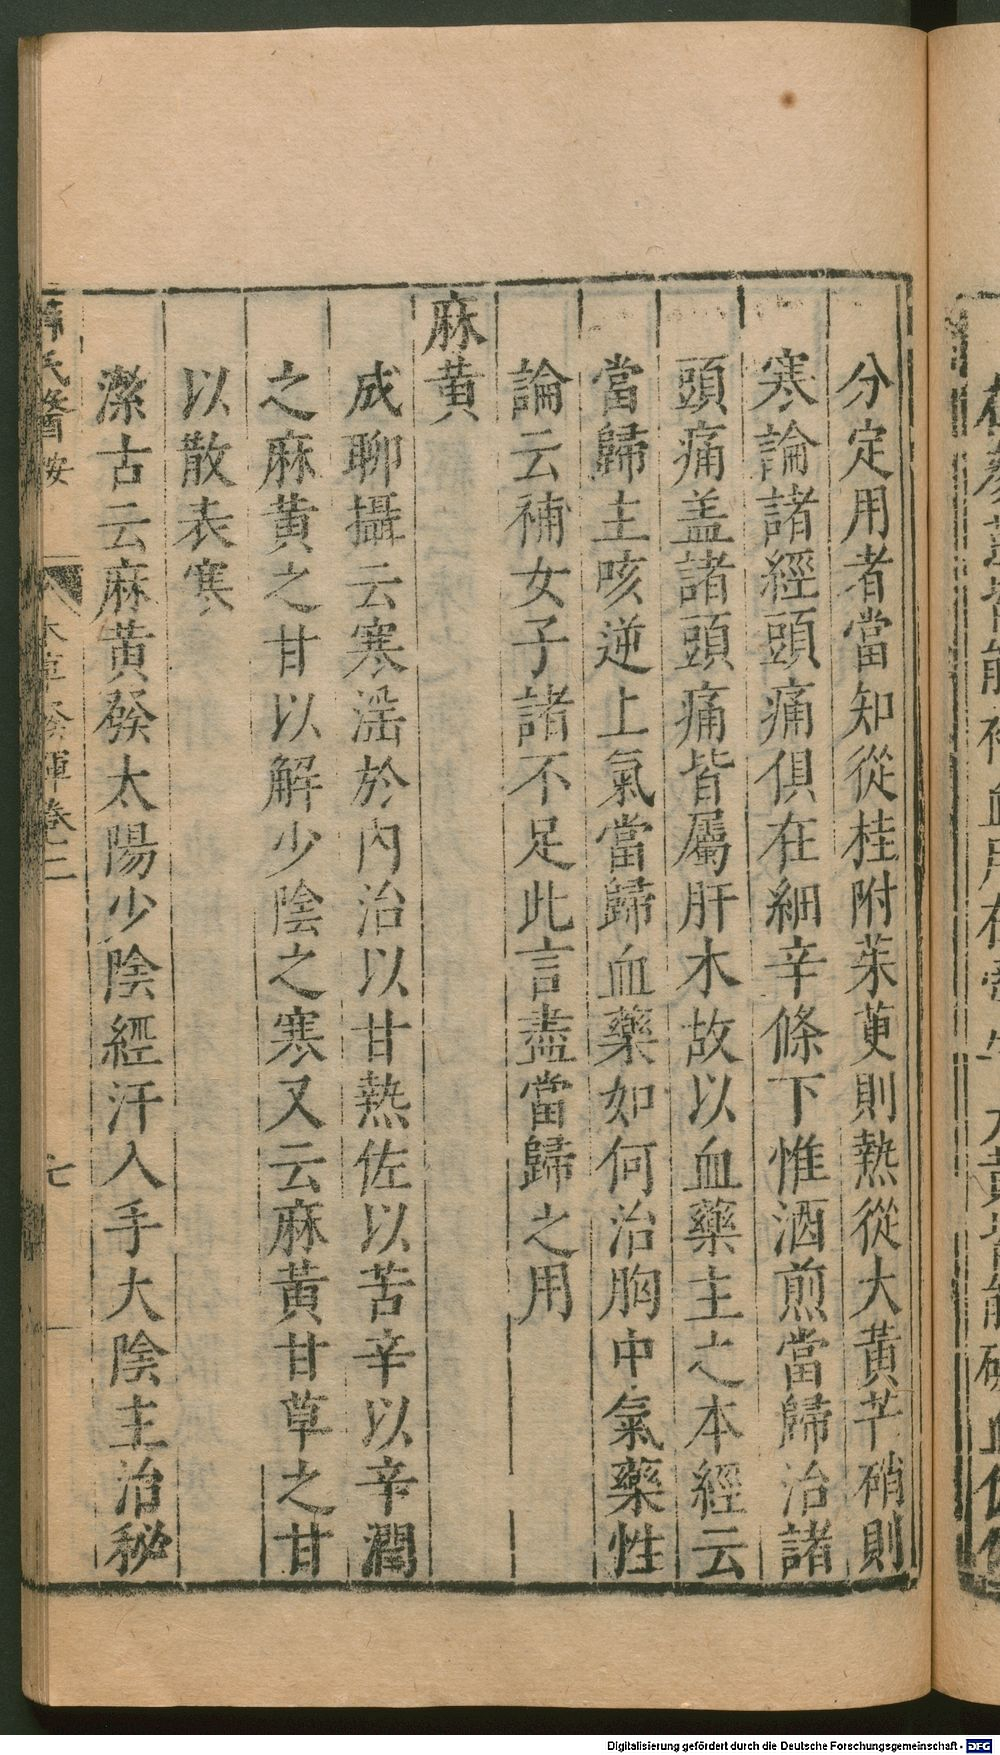 分定用者當知從桂附茱萸則熱從大黃芒硝則
寒論諸經頭痛俱在細辛條下惟酒煎當歸治諸
頭痛盖諸頭痛皆屬肝木故以血藥主之本經云
當歸主咳逆上氣當歸血藥如何治胸中氣藥性
論云補女子諸不足此言盡當歸之用
麻黃
成聊攝云寒滛於內治以甘熱佐以苦辛以辛潤
之麻黃之甘以解少陰之寒又云麻黃甘草之甘
以散表寒
潔古云麻黃發太陽少陰經汗入手大陰主治秘
薛氏醫按
本草發揮卷二
七
Digitalisierung gefördert durch die Deutsche Forschungsgemeinschaft - DFG